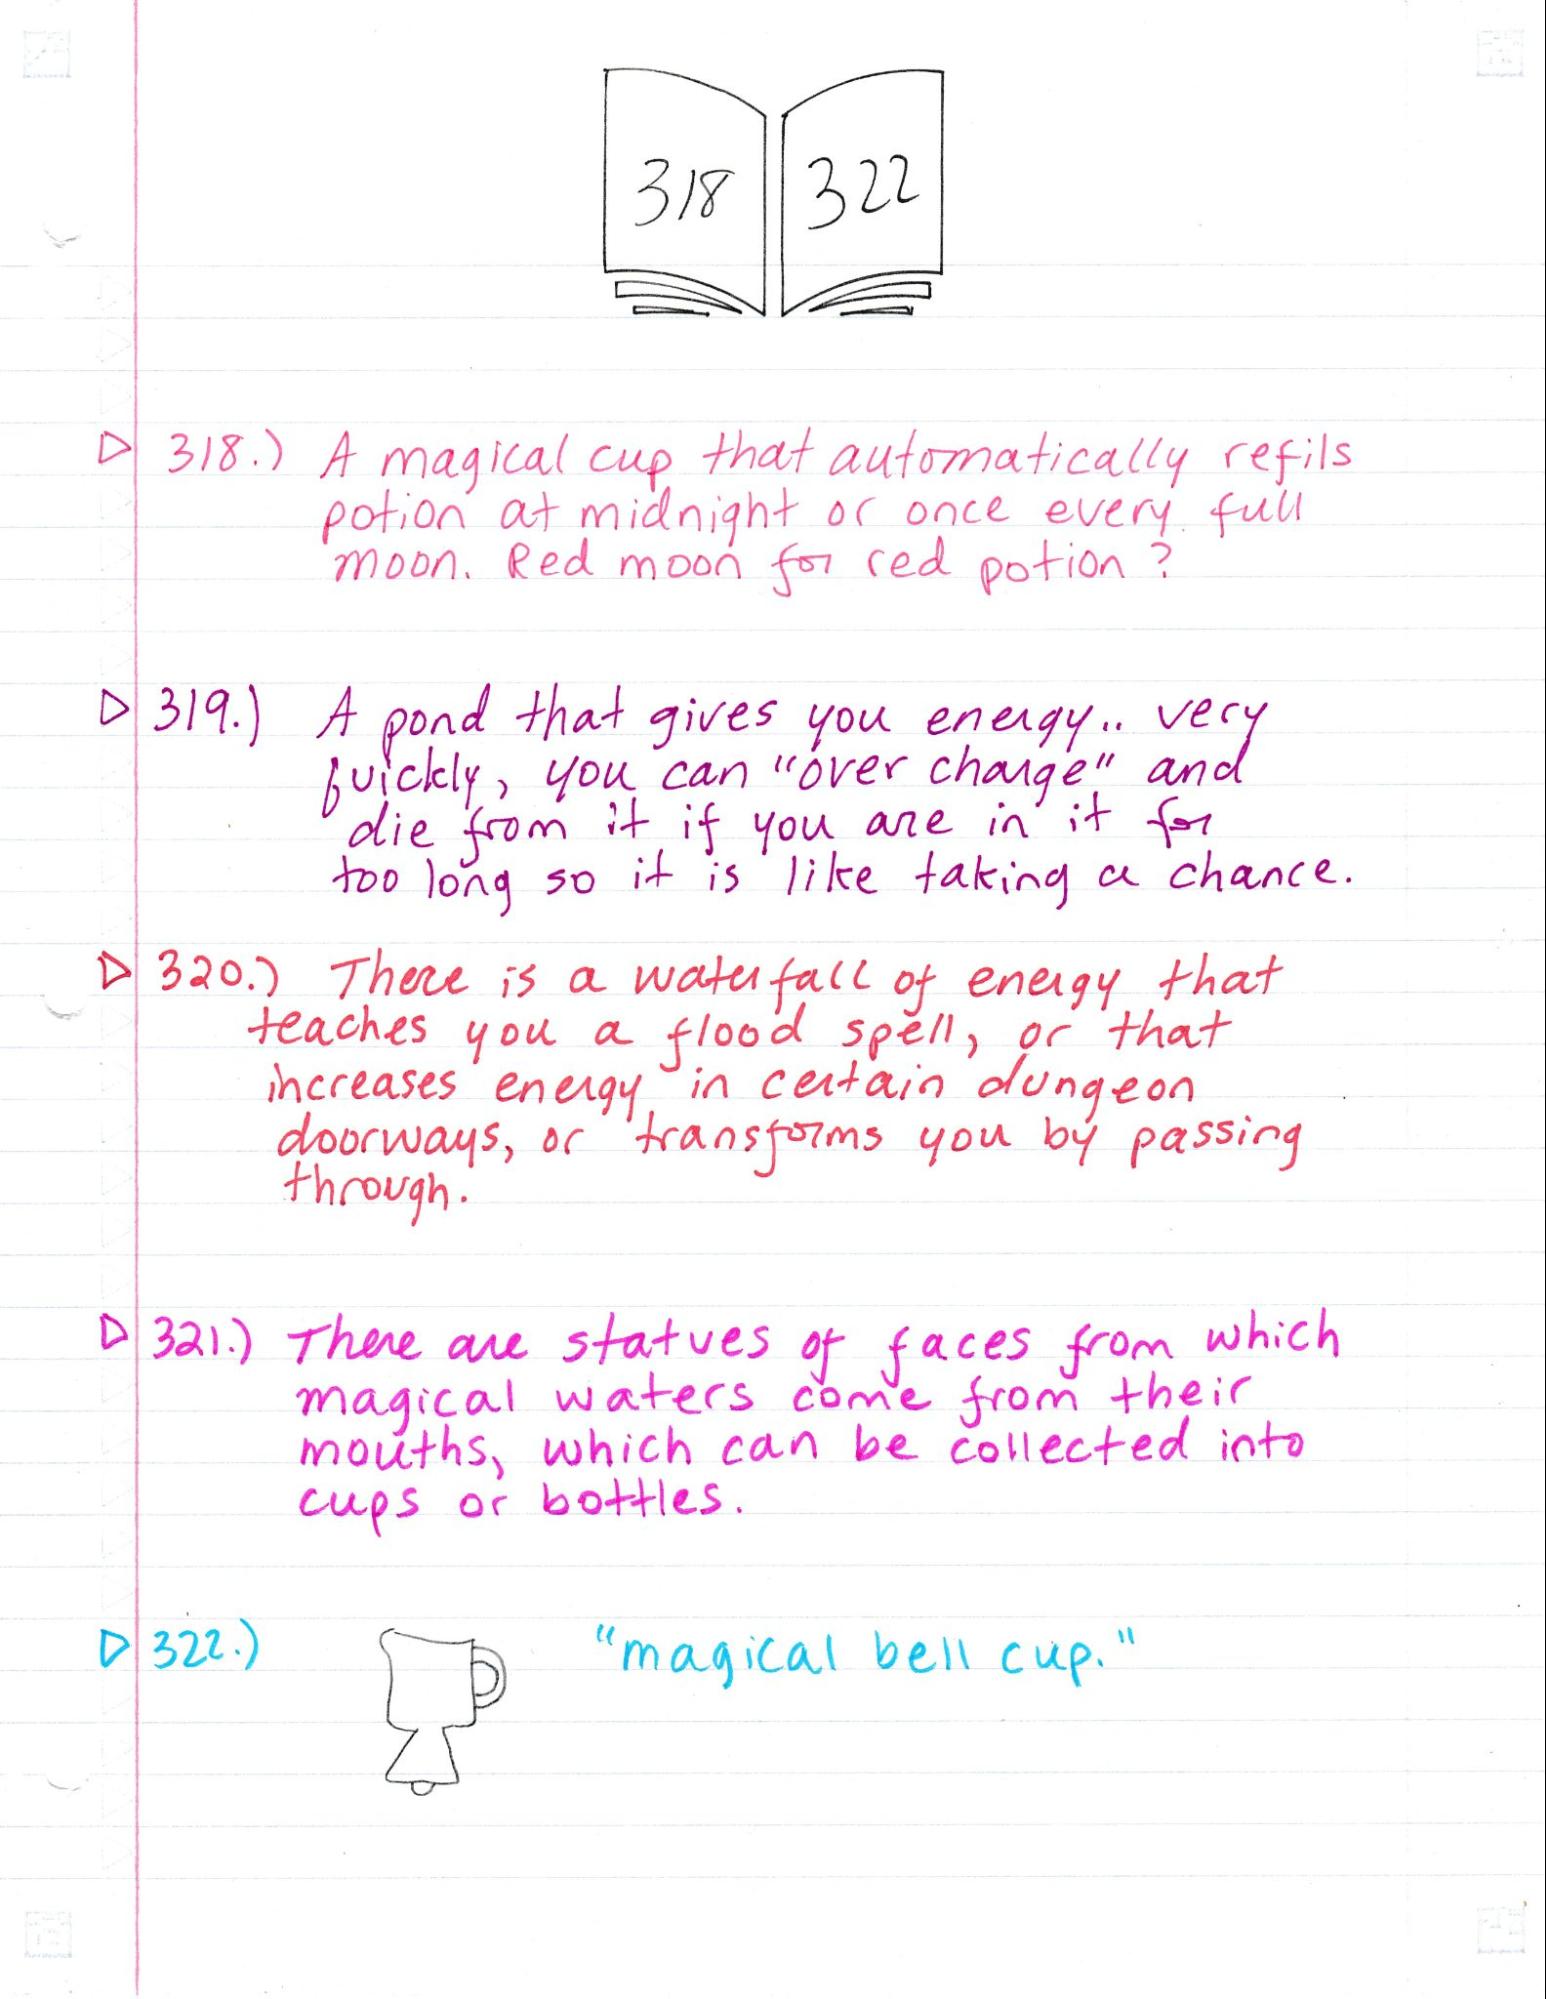 318 322
318.) A magical cup that automatically refils
potion at midnight or once every full
moon. Red moon for red potion?
319.) A pond that gives you energy.. very
quickly, you can "over charge" and
die from it if you are in it for
too long so it is like taking a chance.
320.) There is a waterfall of energy that
teaches you a flood spell, or that
increases energy in certain dungeon
doorways, or transforms you by passing
through.
321.) There are statues of faces from which
magical waters come from their
mouths, which can be collected into
cups or bottles.
322.) "magical bell cup."